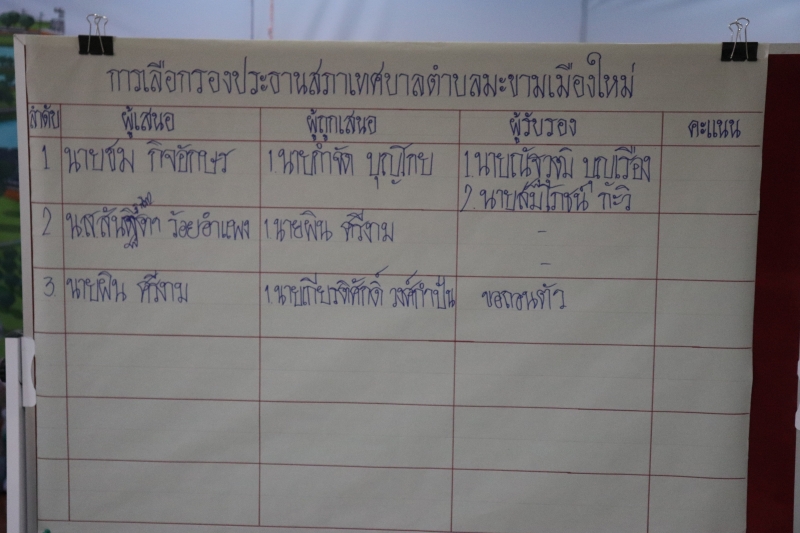 การเลือกรองประธานสภาเทศบาลตำบลมะขามเมืองใหม่
ลำดับ ผู้เสนอ ผู้ถูกเสนอ ผู้รับรอง คะแนน
1 นายชม กิจอักษร 1.นายกำจัด บุญโกย 1.นายณัฐวุฒิ บุญเรือง
2.นายสมโภชน์ ก๊ะวิ
2 น.ส. ร้อยอำแพง 1.นายผิน ศรีงาม -
-
3. นายผิน ศรีงาม 1.นายเกียรติศักดิ์ วงศ์กำปั่น ขอถอนตัว